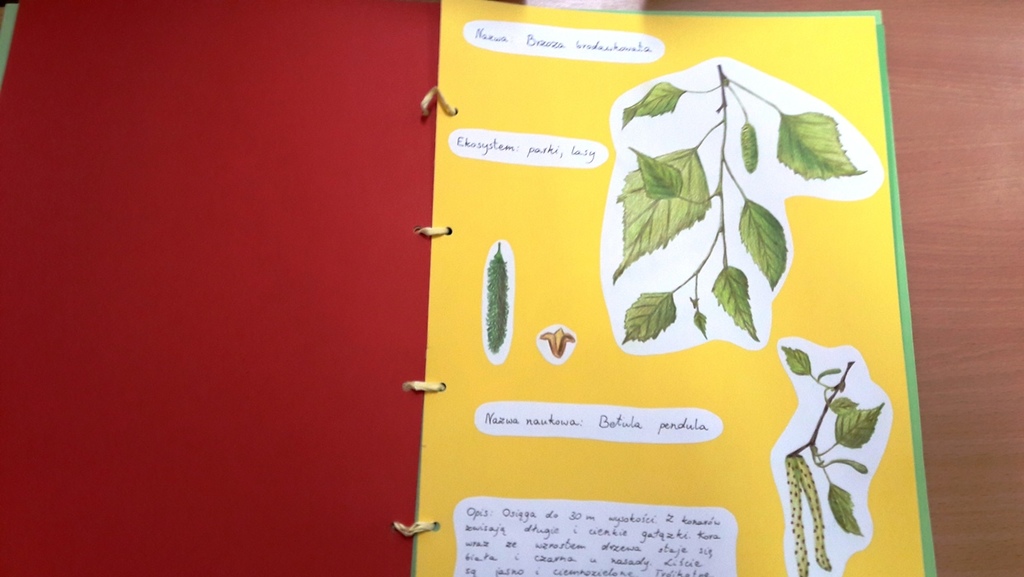 Nazwa: Brzoza brodawkowata
Ekosystem: parki, lasy
Nazwa naukowa: Betula pendula
Opis: Osiąga do 30 m wysokości. Z konarów
zwisają długie i cienkie gałązki. Kora
wraz ze wzrostem drzewa staje się
biała i czarna u nasady. Liście
są jasno i ciemnozielone. Trójkątne